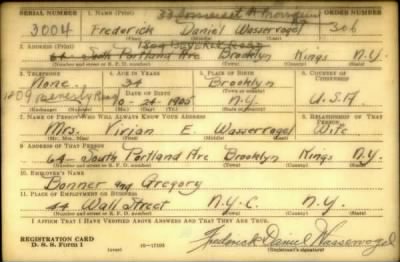 SERIAL NUMBER 1. NAME (Print) ORDER NUMBER
3004 Frederick Daniel Wasservogel 306
(First) (Middle) (Last)
2. ADDRESS (Print)
64- South Portland Ave Brooklyn Kings N.Y.
(Number and street or R. F. D. number) (Town) (County) (State)
3. TELEPHONE 4. AGE IN YEARS 5. PLACE OF BIRTH 6. COUNTRY OF CITIZENSHIP
None. 34 Brooklyn
1809 Beverly Road DATE OF BIRTH (Town or county)
10-24-1905 N.Y. U.S.A.
(Exchange) (Number) (Mo.) (Day) (Yr.) (State or country)
7. NAME OF PERSON WHO WILL ALWAYS KNOW YOUR ADDRESS 8. RELATIONSHIP OF THAT PERSON
Mrs. Vivian E. Wasservogel Wife
(Mr., Mrs., Miss) (First) (Middle) (Last)
9. ADDRESS OF THAT PERSON
64- South Portland Ave Brooklyn Kings N.Y.
(Number and street or R. F. D. number) (Town) (County) (State)
10. EMPLOYER'S NAME
Bonner and Gregory
11. PLACE OF EMPLOYMENT OR BUSINESS
44 Wall Street N.Y.C. N.Y.
(Number and street or R. F. D. number) (Town) (County) (State)
I AFFIRM THAT I HAVE VERIFIED ABOVE ANSWERS AND THAT THEY ARE TRUE.
REGISTRATION CARD
D. S. S. Form 1 (over) 16-17105 Frederick Daniel Wasservogel
(Registrant's signature)